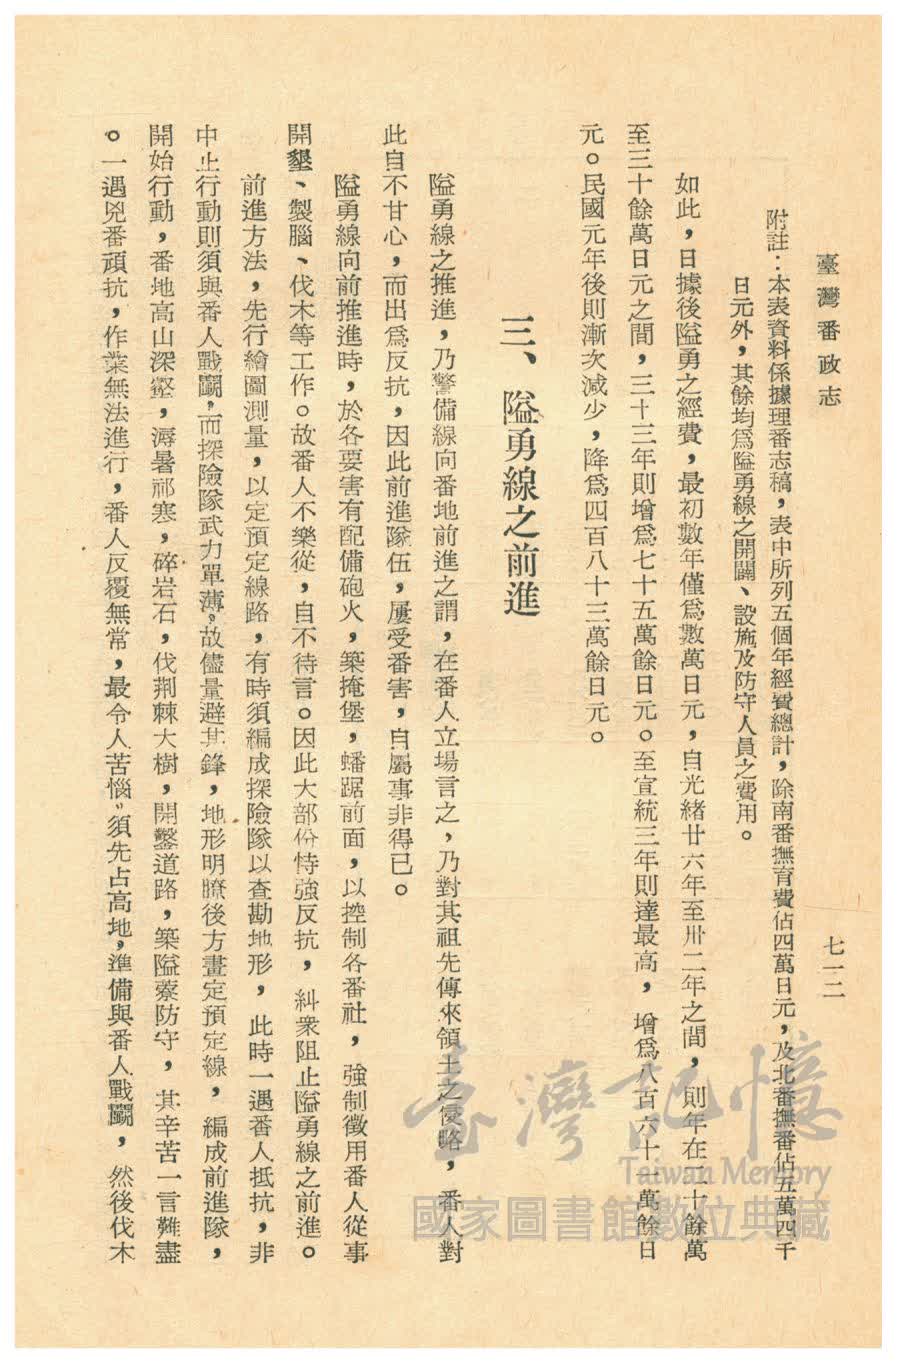 臺灣番政志
七一二
附註：本表資料係據理番志稿，表中所列五個年經費總計，除南番撫育費佔四萬日元，及北番撫番佔五萬四千
日元外，其餘均爲隘勇線之開闢、設施及防守人員之費用。
如此，日據後隘勇之經費，最初數年僅爲數萬日元，自光緒廿六年至卅二年之間，則年在二十餘萬
至三十餘萬日元之間，三十三年則增爲七十五萬餘日元。至宣統三年則達最高，增爲八百六十一萬餘日
元。民國元年後則漸次減少，降爲四百八十三萬餘日元。
三、隘勇線之前進
隘勇線之推進，乃警備線向番地前進之謂，在番人立場言之，乃對其祖先傳來領土之侵略，番人對
此自不甘心，而出爲反抗，因此前進隊伍，屢受番害，自屬事非得已。
隘勇線向前推進時，於各要害有配備砲火，築掩堡，蟠踞前面，以控制各番社，強制徵用番人從事
開墾、製腦、伐木等工作。故番人不樂從，自不待言。因此大部份恃強反抗，糾衆阻止隘勇線之前進。
前進方法，先行繪圖測量，以定預定線路，有時須編成探險隊以查勘地形，此時一遇番人抵抗，非
中止行動則須與番人戰鬪，而探險隊武力單薄，故儘量避其鋒，地形明瞭後方畫定預定線，編成前進隊，
開始行動，番地高山深壑，溽暑祁寒，碎岩石，伐荆棘大樹，開鑿道路，築隘藔防守，其辛苦一言難盡
。一遇兇番頑抗，作業無法進行，番人反覆無常，最令人苦惱，須先占高地，準備與番人戰鬪，然後伐木
臺灣記憶
Taiwan Memory
國家圖書館數位典藏